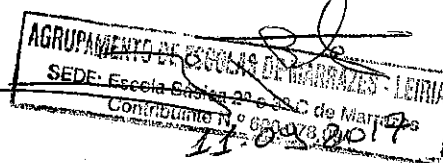 AGRUPAMENTO DE ESCOLAS DE MARRAZES - LEIRIA
SEDE: Escola Básica 2º e 3º C de Marrazes
Contribuinte N.º 600 078
11.09.2017